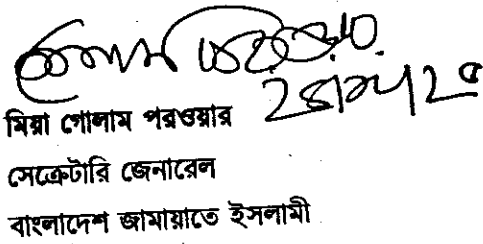 মিয়া গোলাম পরওয়ার
সেক্রেটারি জেনারেল
বাংলাদেশ জামায়াতে ইসলামী